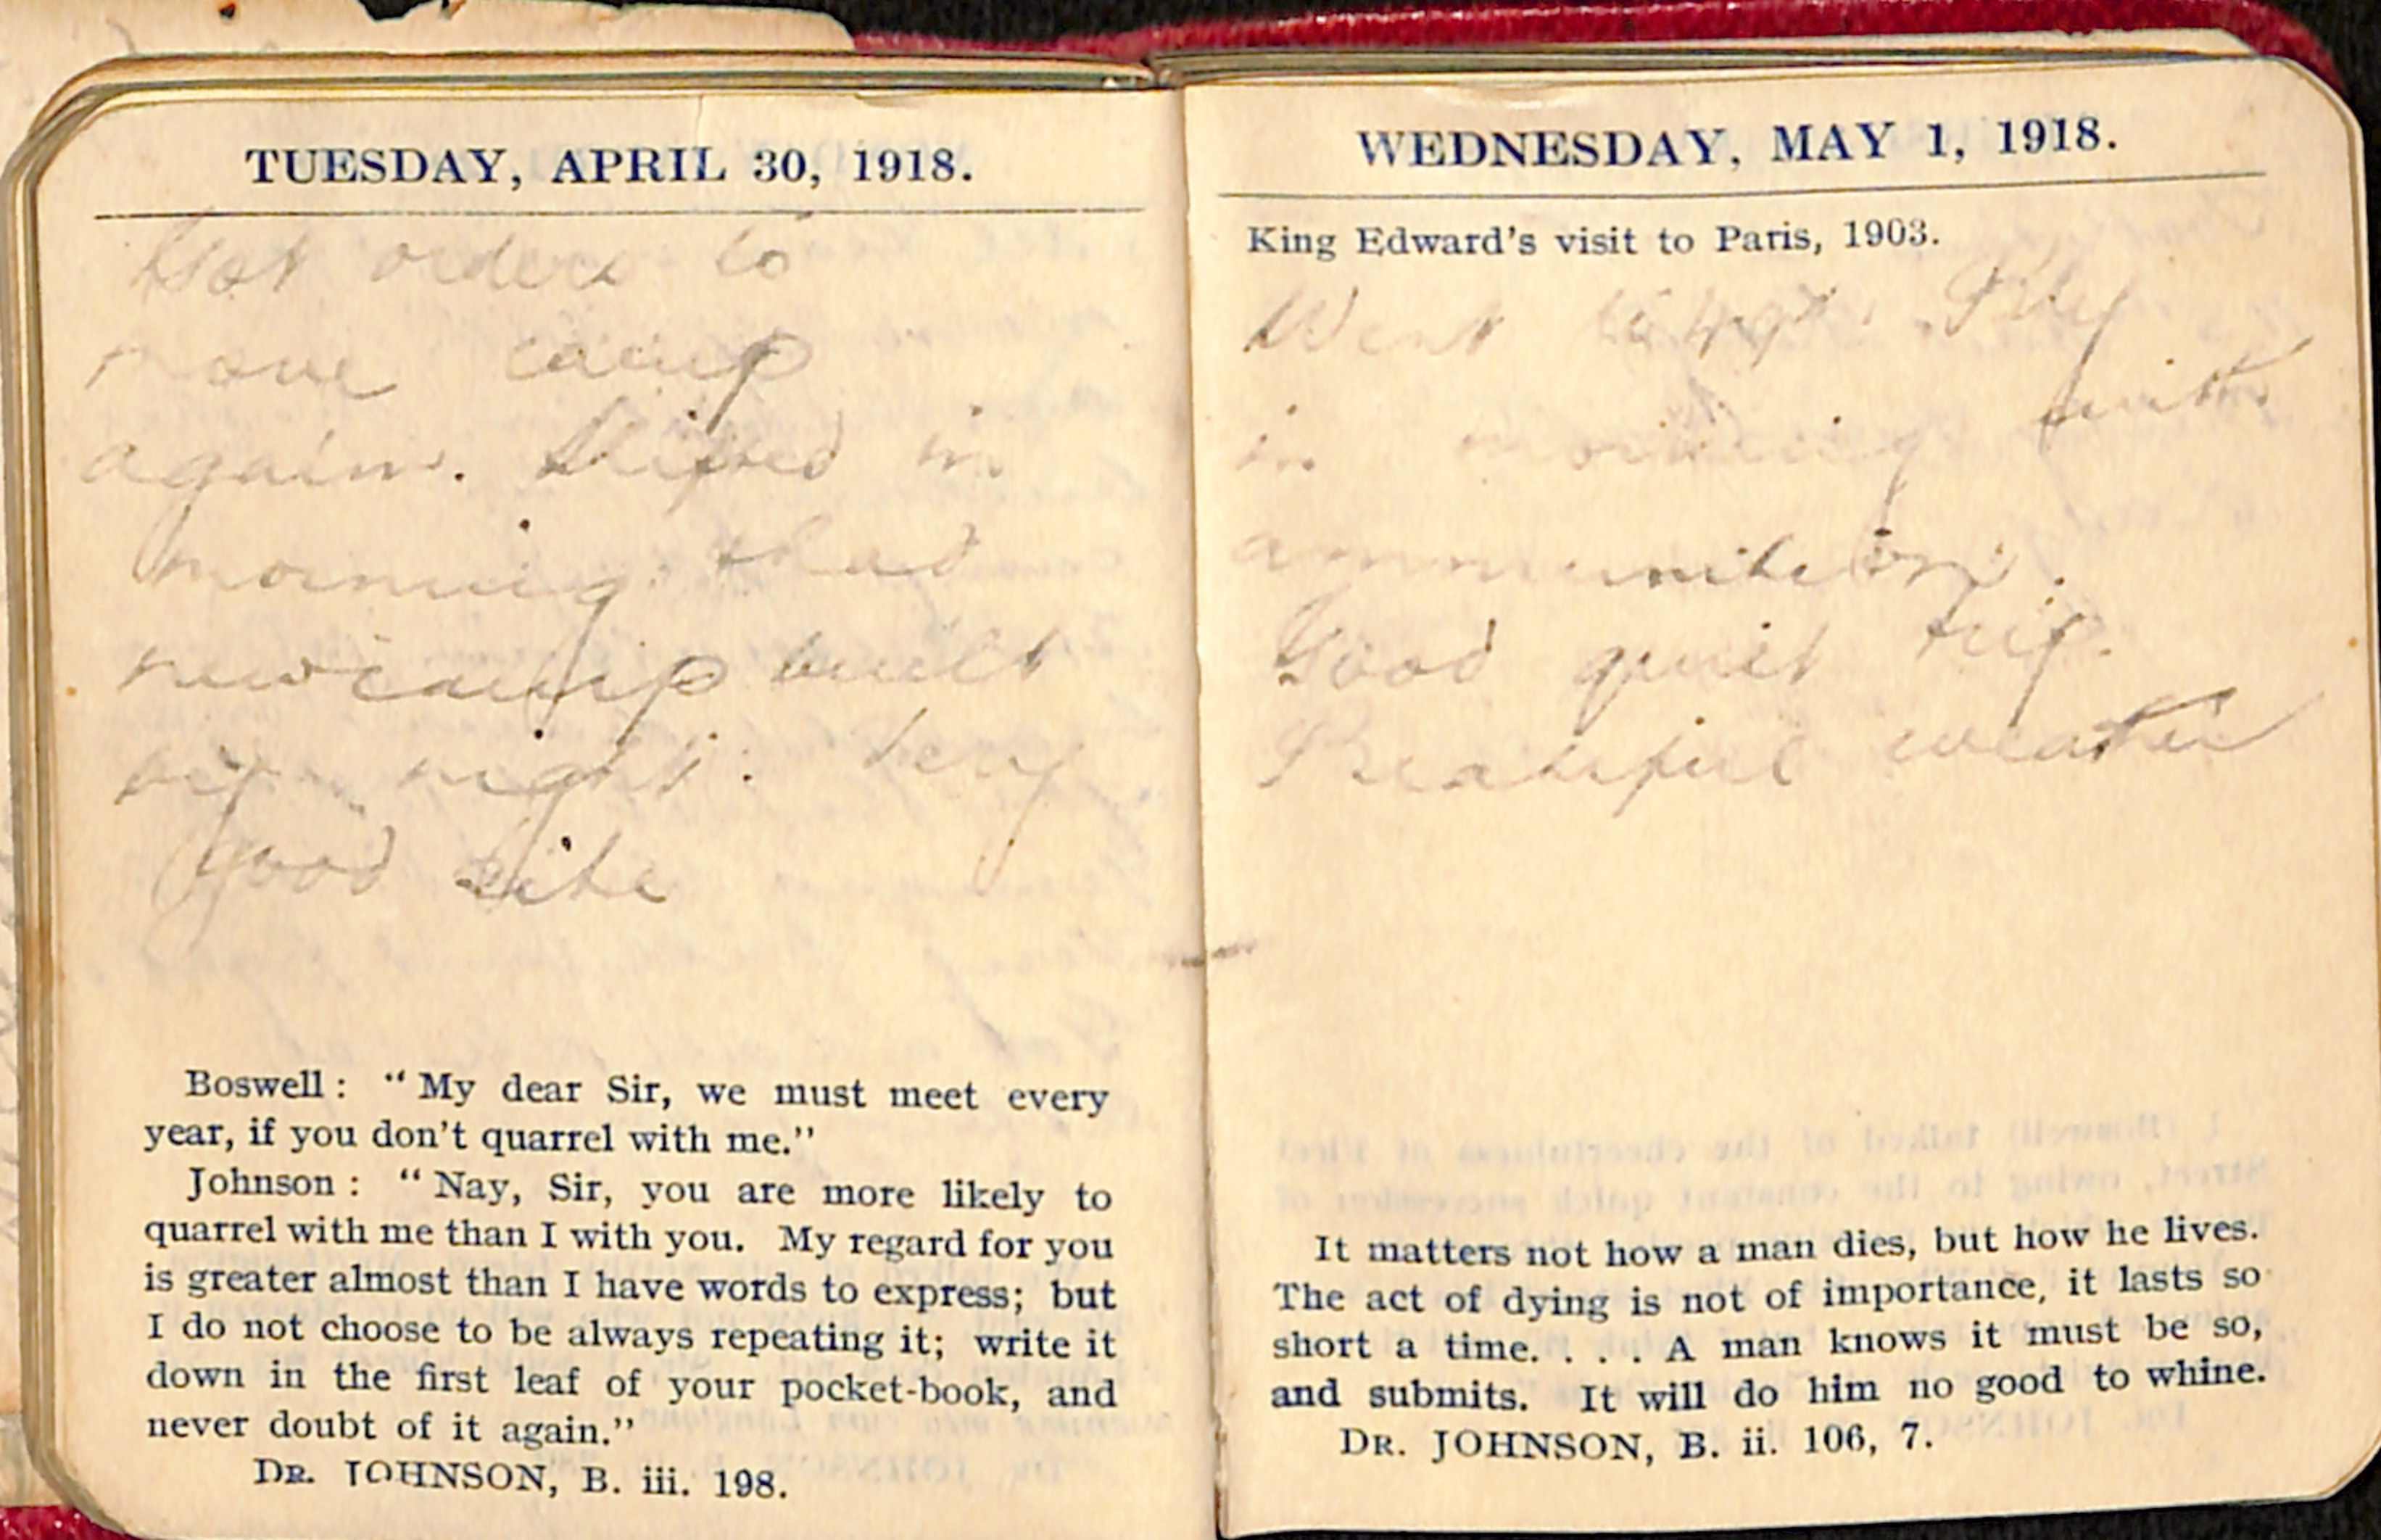 TUESDAY, APRIL 30, 1918.
Got orders to
move camp
again. Shifted in
morning & had
new camp built
by night. Very
good site
Boswell: "My dear Sir, we must meet every
year, if you don't quarrel with me."
Johnson: "Nay, Sir, you are more likely to
quarrel with me than I with you. My regard for you
is greater almost than I have words to express; but
I do not choose to be always repeating it; write it
down in the first leaf of your pocket-book, and
never doubt of it again."
DR. JOHNSON, B. iii. 198.
WEDNESDAY, MAY 1, 1918.
King Edward's visit to Paris, 1903.
Went to
in morning with
ammunition.
Good quiet trip.
Beatiful weather
It matters not how a man dies, but how he lives.
The act of dying is not of importance, it lasts so
short a time. . . . A man knows it must be so,
and submits. It will do him no good to whine.
DR. JOHNSON, B. ii. 106, 7.